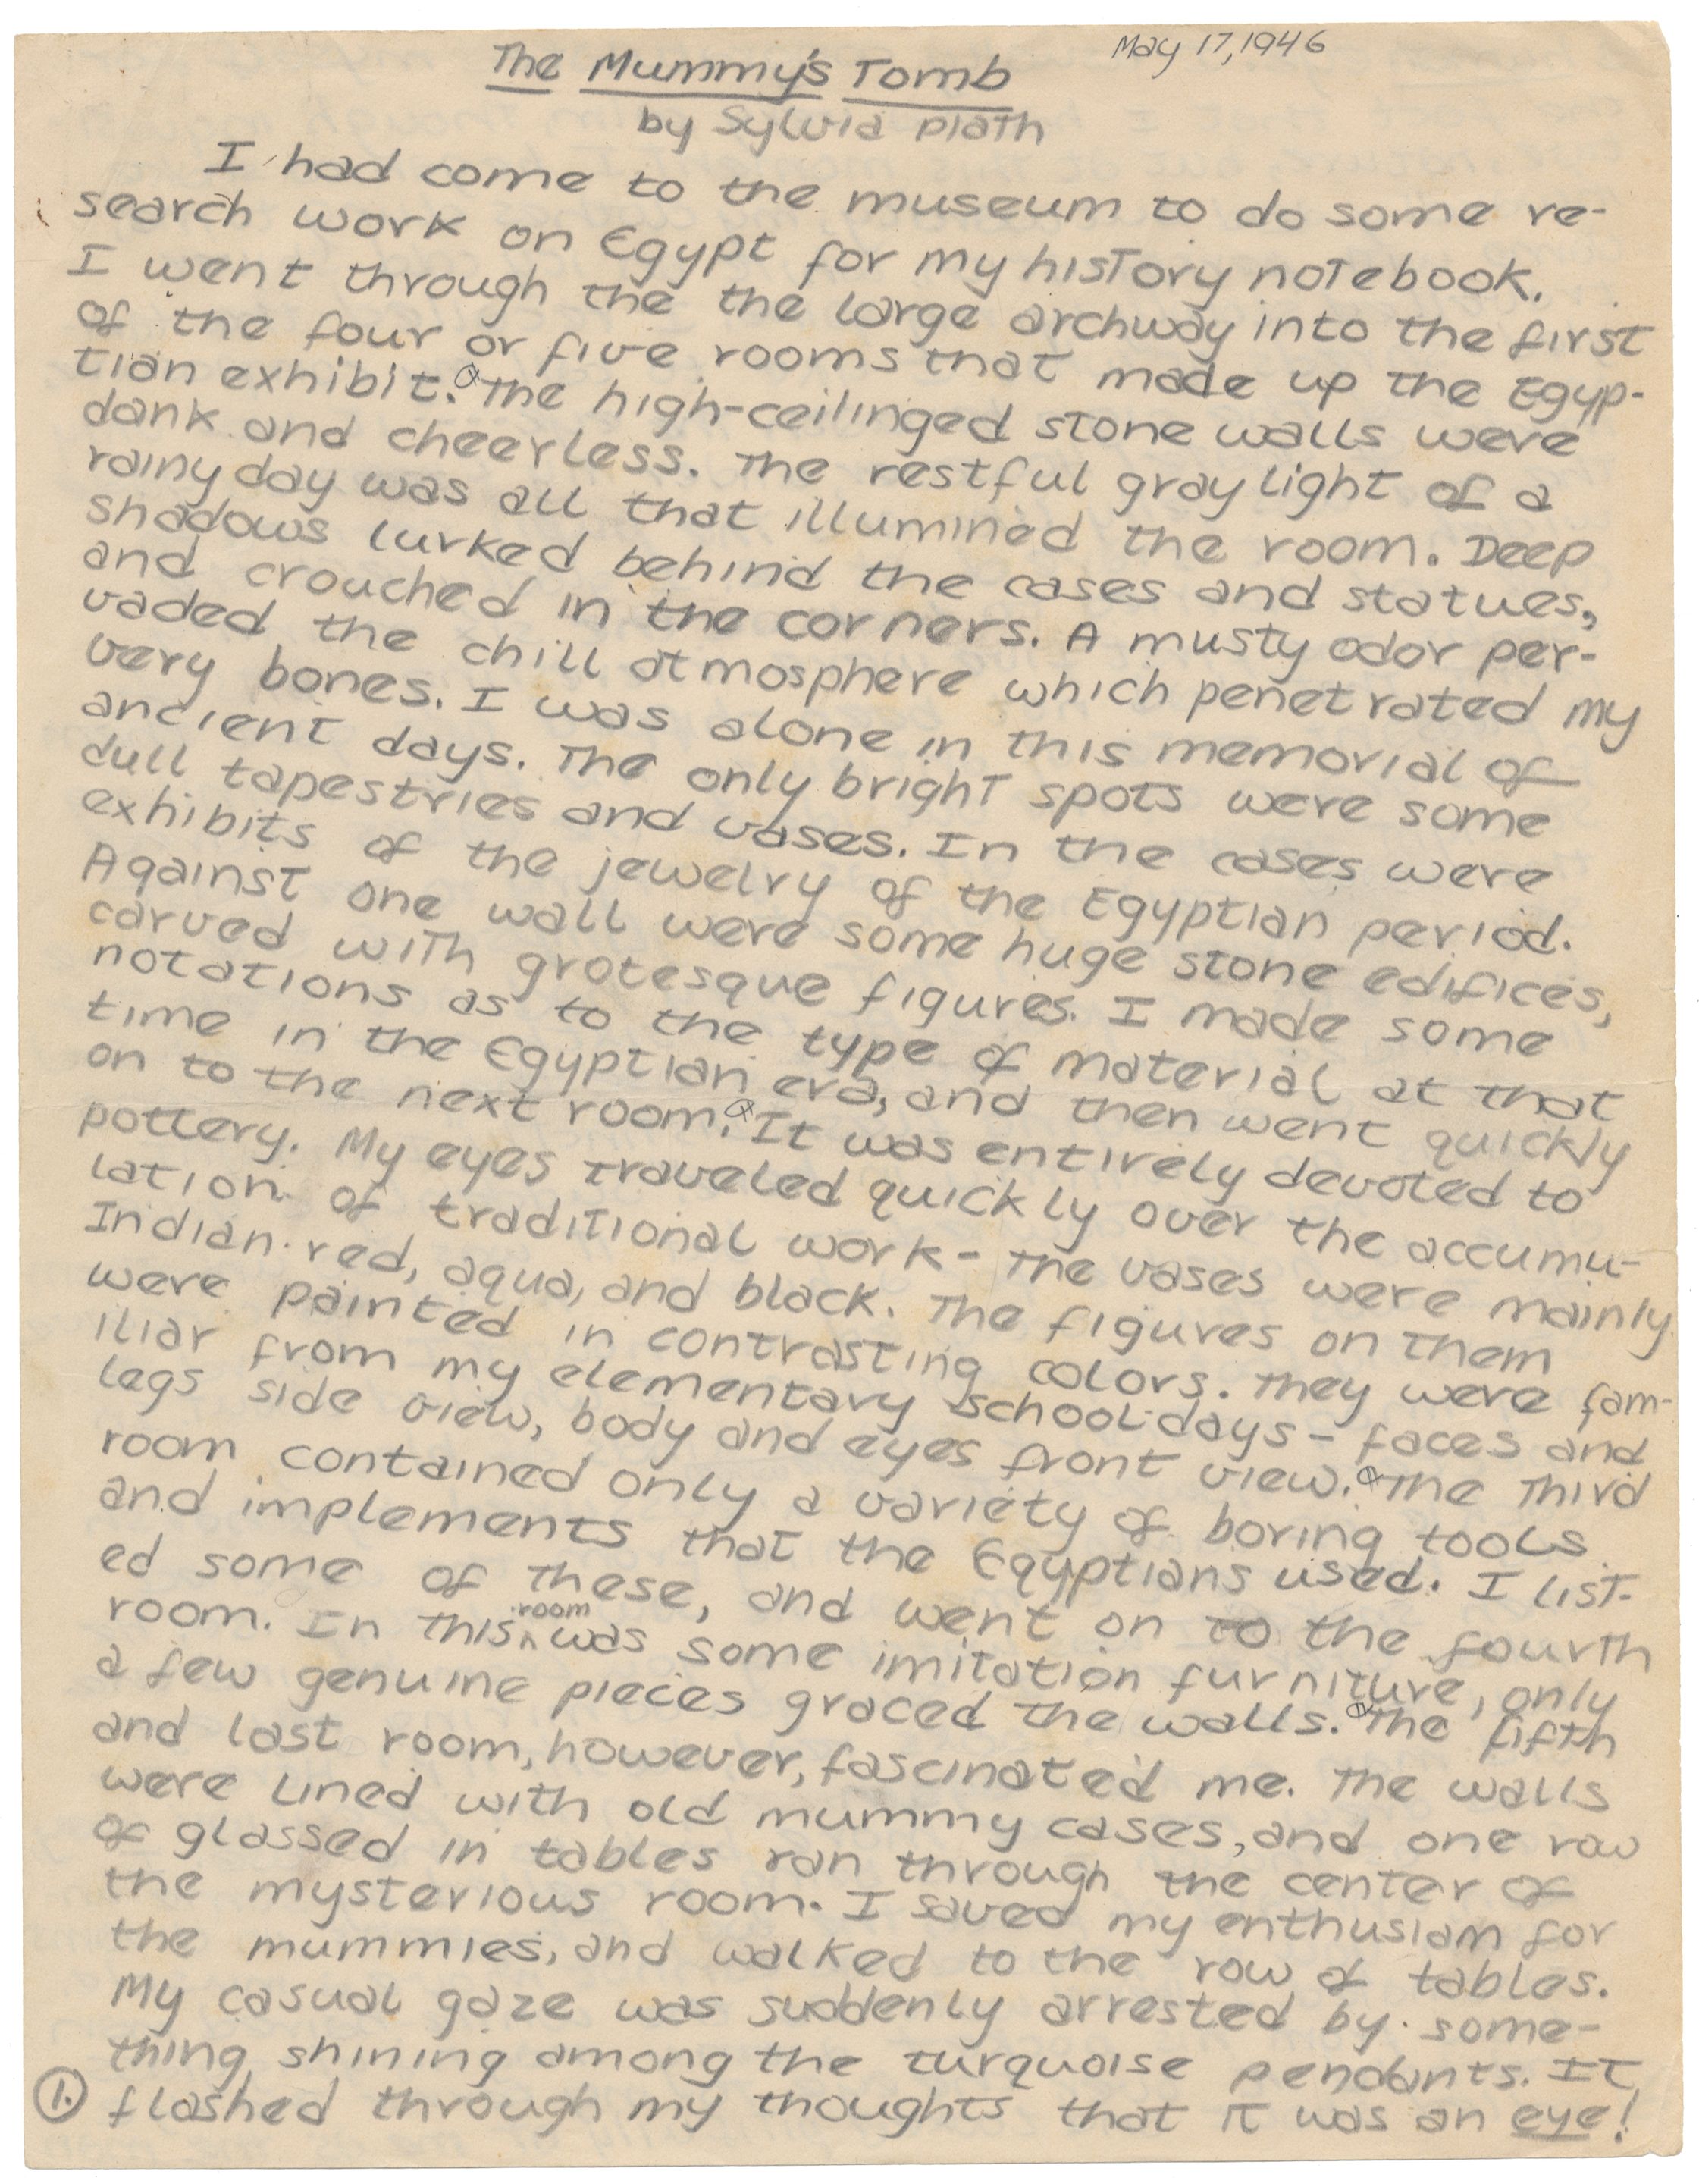 May 17, 1946
The Mummy's Tomb
by Sylvia Plath
I had come to the museum to do some re-
search work on Egypt for my history notebook.
I went through the the large archway into the first
of the four or five rooms that made up the Egyp-
tian exhibit. The high-ceilinged stone walls were
dank and cheerless. The restful gray light of a
rainy day was all that illumined the room. Deep
shadows lurked behind the cases and statues,
and crouched in the corners. A musty odor per-
vaded the chill atmosphere which penetrated my
very bones. I was alone in this memorial of
ancient days. The only bright spots were some
dull tapestries and vases. In the cases were
exhibits of the jewelry of the Egyptian period.
Against one wall were some huge stone edifices,
carved with grotesque figures. I made some
notations as to the type of material at that
time in the Egyptian era, and then went quickly
on to the next room. It was entirely devoted to
pottery. My eyes traveled quickly over the accumu-
lation of traditional work - the vases were mainly
Indian red, aqua, and black. The figures on them
were painted in contrasting colors. They were fam-
iliar from my elementary school days - faces and
legs side view, body and eyes front view. The third
room contained only a variety of boring tools
and implements that the Egyptians used. I list-
ed some of these, and went on to the fourth
room. In this room was some imitation furniture, only
a few genuine pieces graced the walls. The fifth
and last room, however, fascinated me. The walls
were lined with old mummy cases, and one row
of glassed in tables ran through the center of
the mysterious room. I saved my enthusiam for
the mummies, and walked to the row of tables.
My casual gaze was suddenly arrested by some-
thing shining among the turquoise pendants. It
1. flashed through my thoughts that it was an eye!